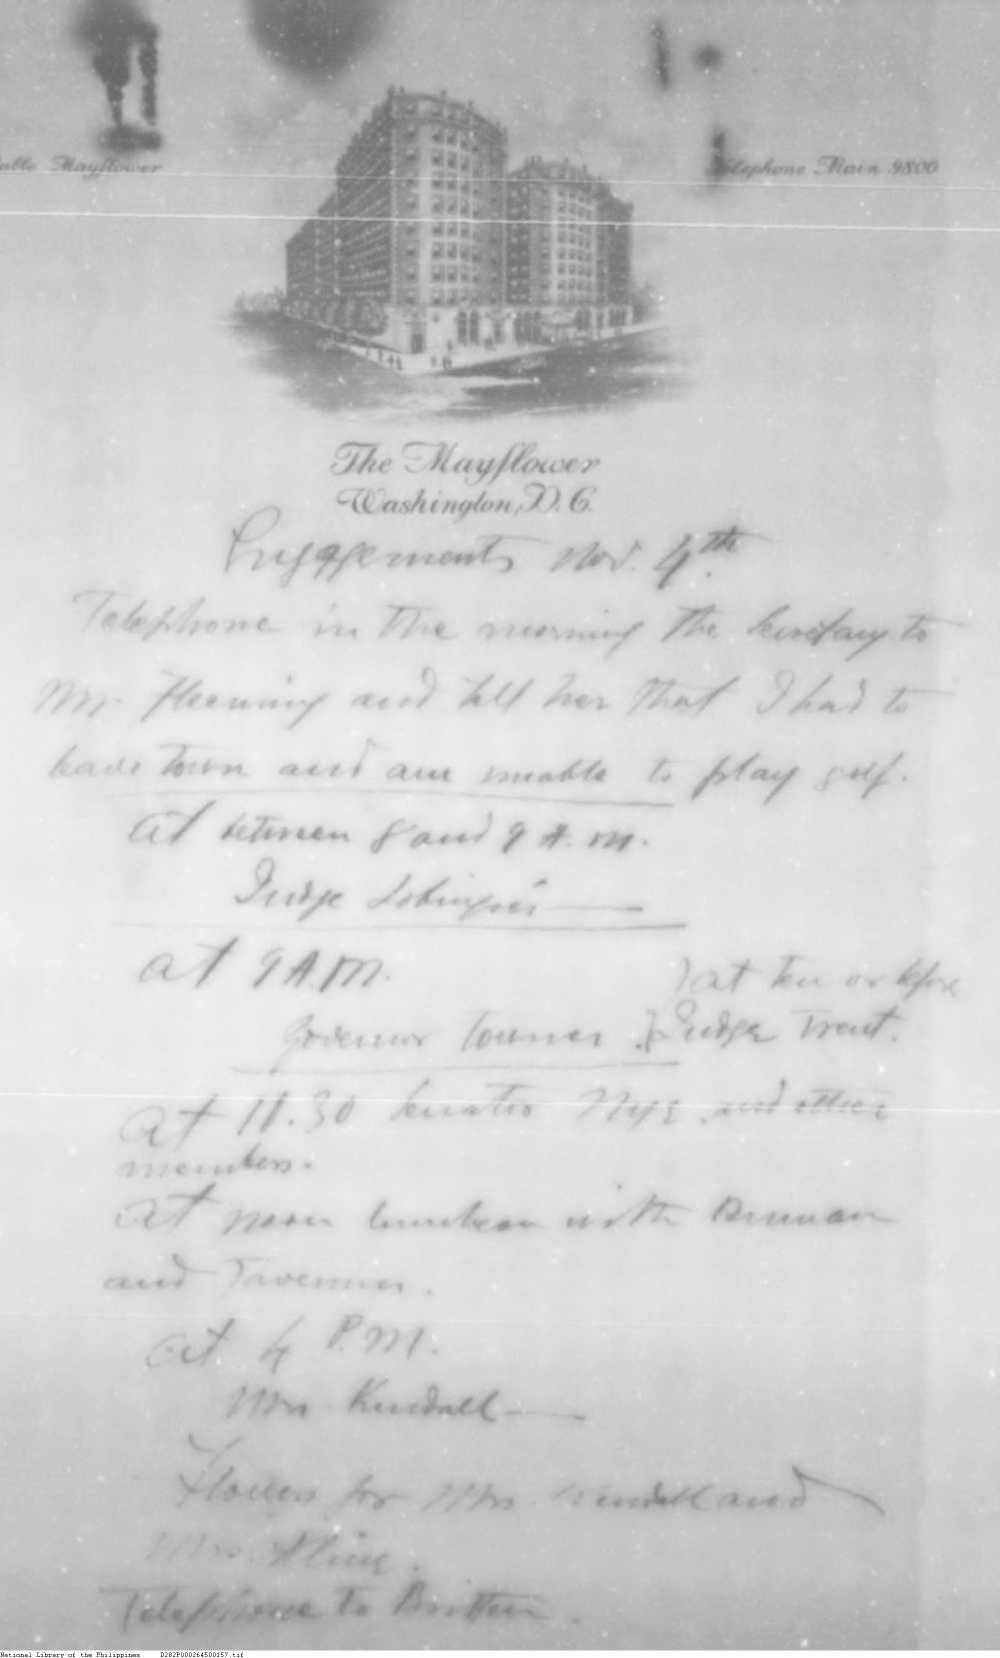 Cable Mayflower
Telephone Main 9800
The Mayflower
Washington, D.C.
Engagements Nov. 4th.
Telephone in the morning the Secretary to
Mr. Fleeming and tell her that I had to
leave town and am unable to play golf.
At between 8 and 9 A.M.
Judge Lobingier
at 9 A.M.
Governor Towner
at ten or before
Judge Trent.
At 11.30 Senator Nye and other
members.
At noon luncheon with
and Tavenner.
at 4 P.M.
Mrs Kendall
Flowers for Mrs. Kendall and
Mrs. Kline.
Telephone to Britten.
National Library of the Philippines D282P000264500157.tif